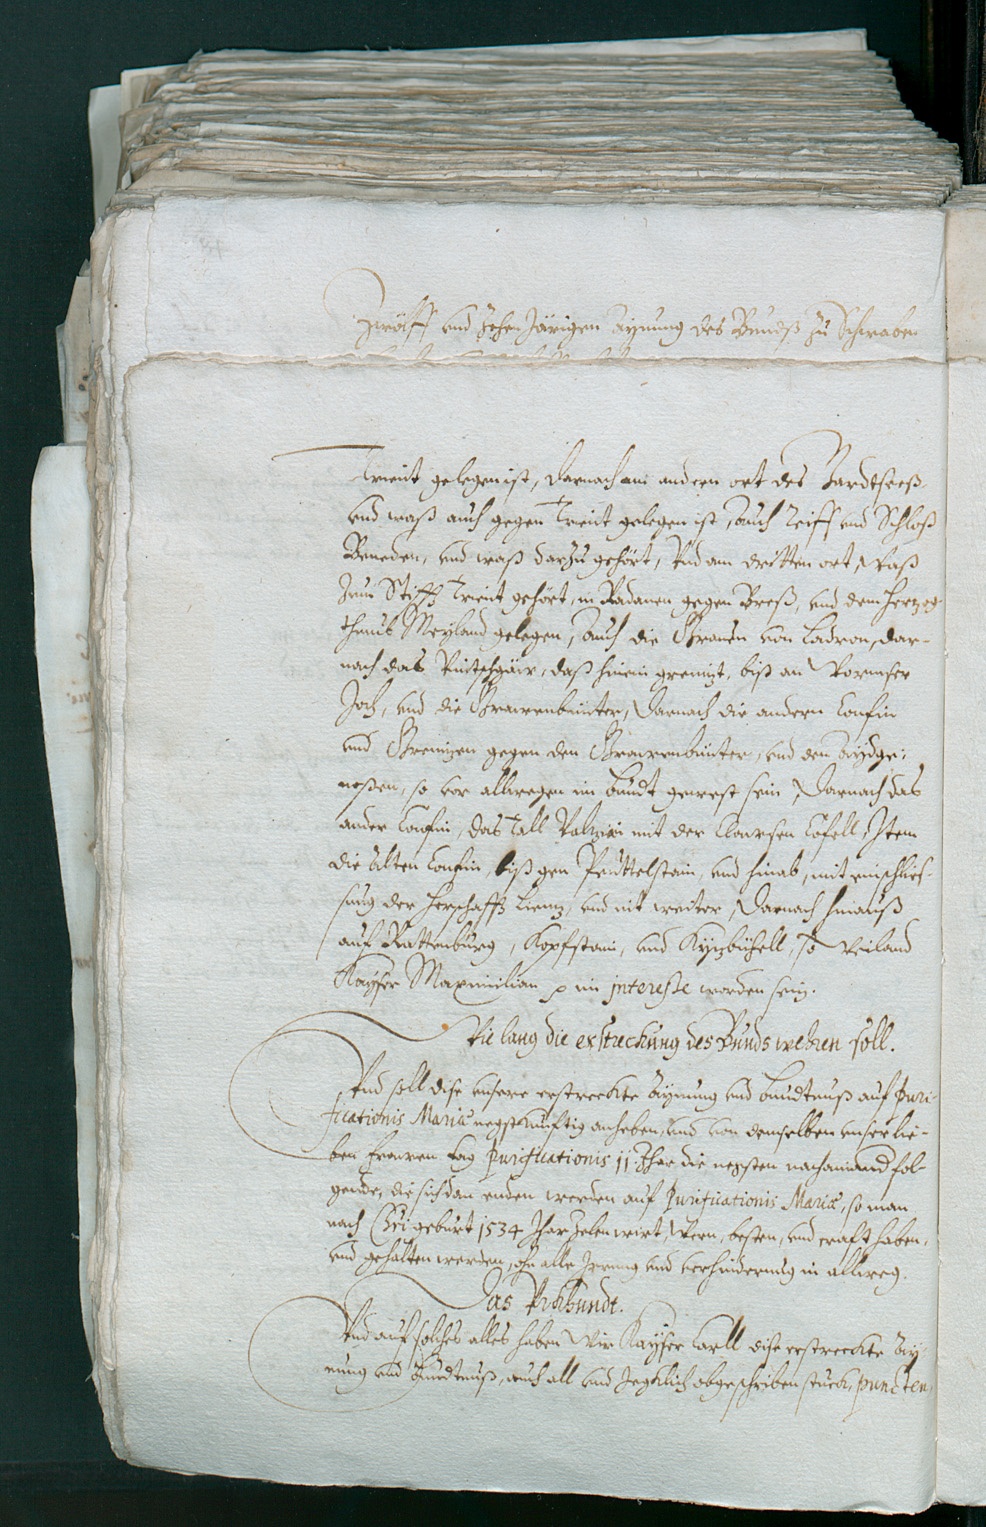 Zwölff und Zehen Järigen Aynung des Bundß zu Schwaben
Trient gelegen ist, darnach am andern ort des Gardtseeß
und waß auch gegen Trient gelegen ist, auch Reiff und Schloß
Peneden, und waß darzu gehört, Und am dritten ort, Waß
Zum Stifft Trient gehört, in Radanen gegen Breß, und dem Hertzog-
thumb Meyland gelegen, auch die Graven von Ladron, dar-
nach das Vintschgäw, daß hinein grenizt, biß an Wormser
Joch, und die Grawenbünter, Darnach die andern Confin
und Grenizen gegen den Grawenbünter, und den Aydge-
noßen, so vor allwegen im Bundt gewest sein, Darnach das
ander Confin, das Tall mit der Item
die alten Confin, biß gen Peuttelstain, und hinab, mit einschlies-
sung der Herschafft Lienz, und nit weiter, Darnach hinauß
auf Rattenburg, Kopfstain, und Kytzbühell, so weiland
Kayser Maximilian p im interesse worden sein.
Wie lang die erstreckung des Bunds wehren soll.
Und soll dise unsere erstreckte Aynung und Bundtnuß auf Puri-
ficationis Mariæ negstkünftig anheben, und von demselben unser lie-
ben Frawen tag Purificationis 11 Jhar die negsten nacheinand fol-
gende, die sich dan enden werden auf Purificationis Mariæ, so man
nach Chri geburt 1534 Jhar zelen wirt, Wern, besten, und craft haben,
und gehalten werden, ohn alle Irrung und verhinderung in allweg.
Das Urkhundt.
Und auf solches alles haben Wir Kayser Carll dise erstreckte Ay-
nung und Bundtnuß, auch all und Jegklich obgeschriben stuck, puncten,